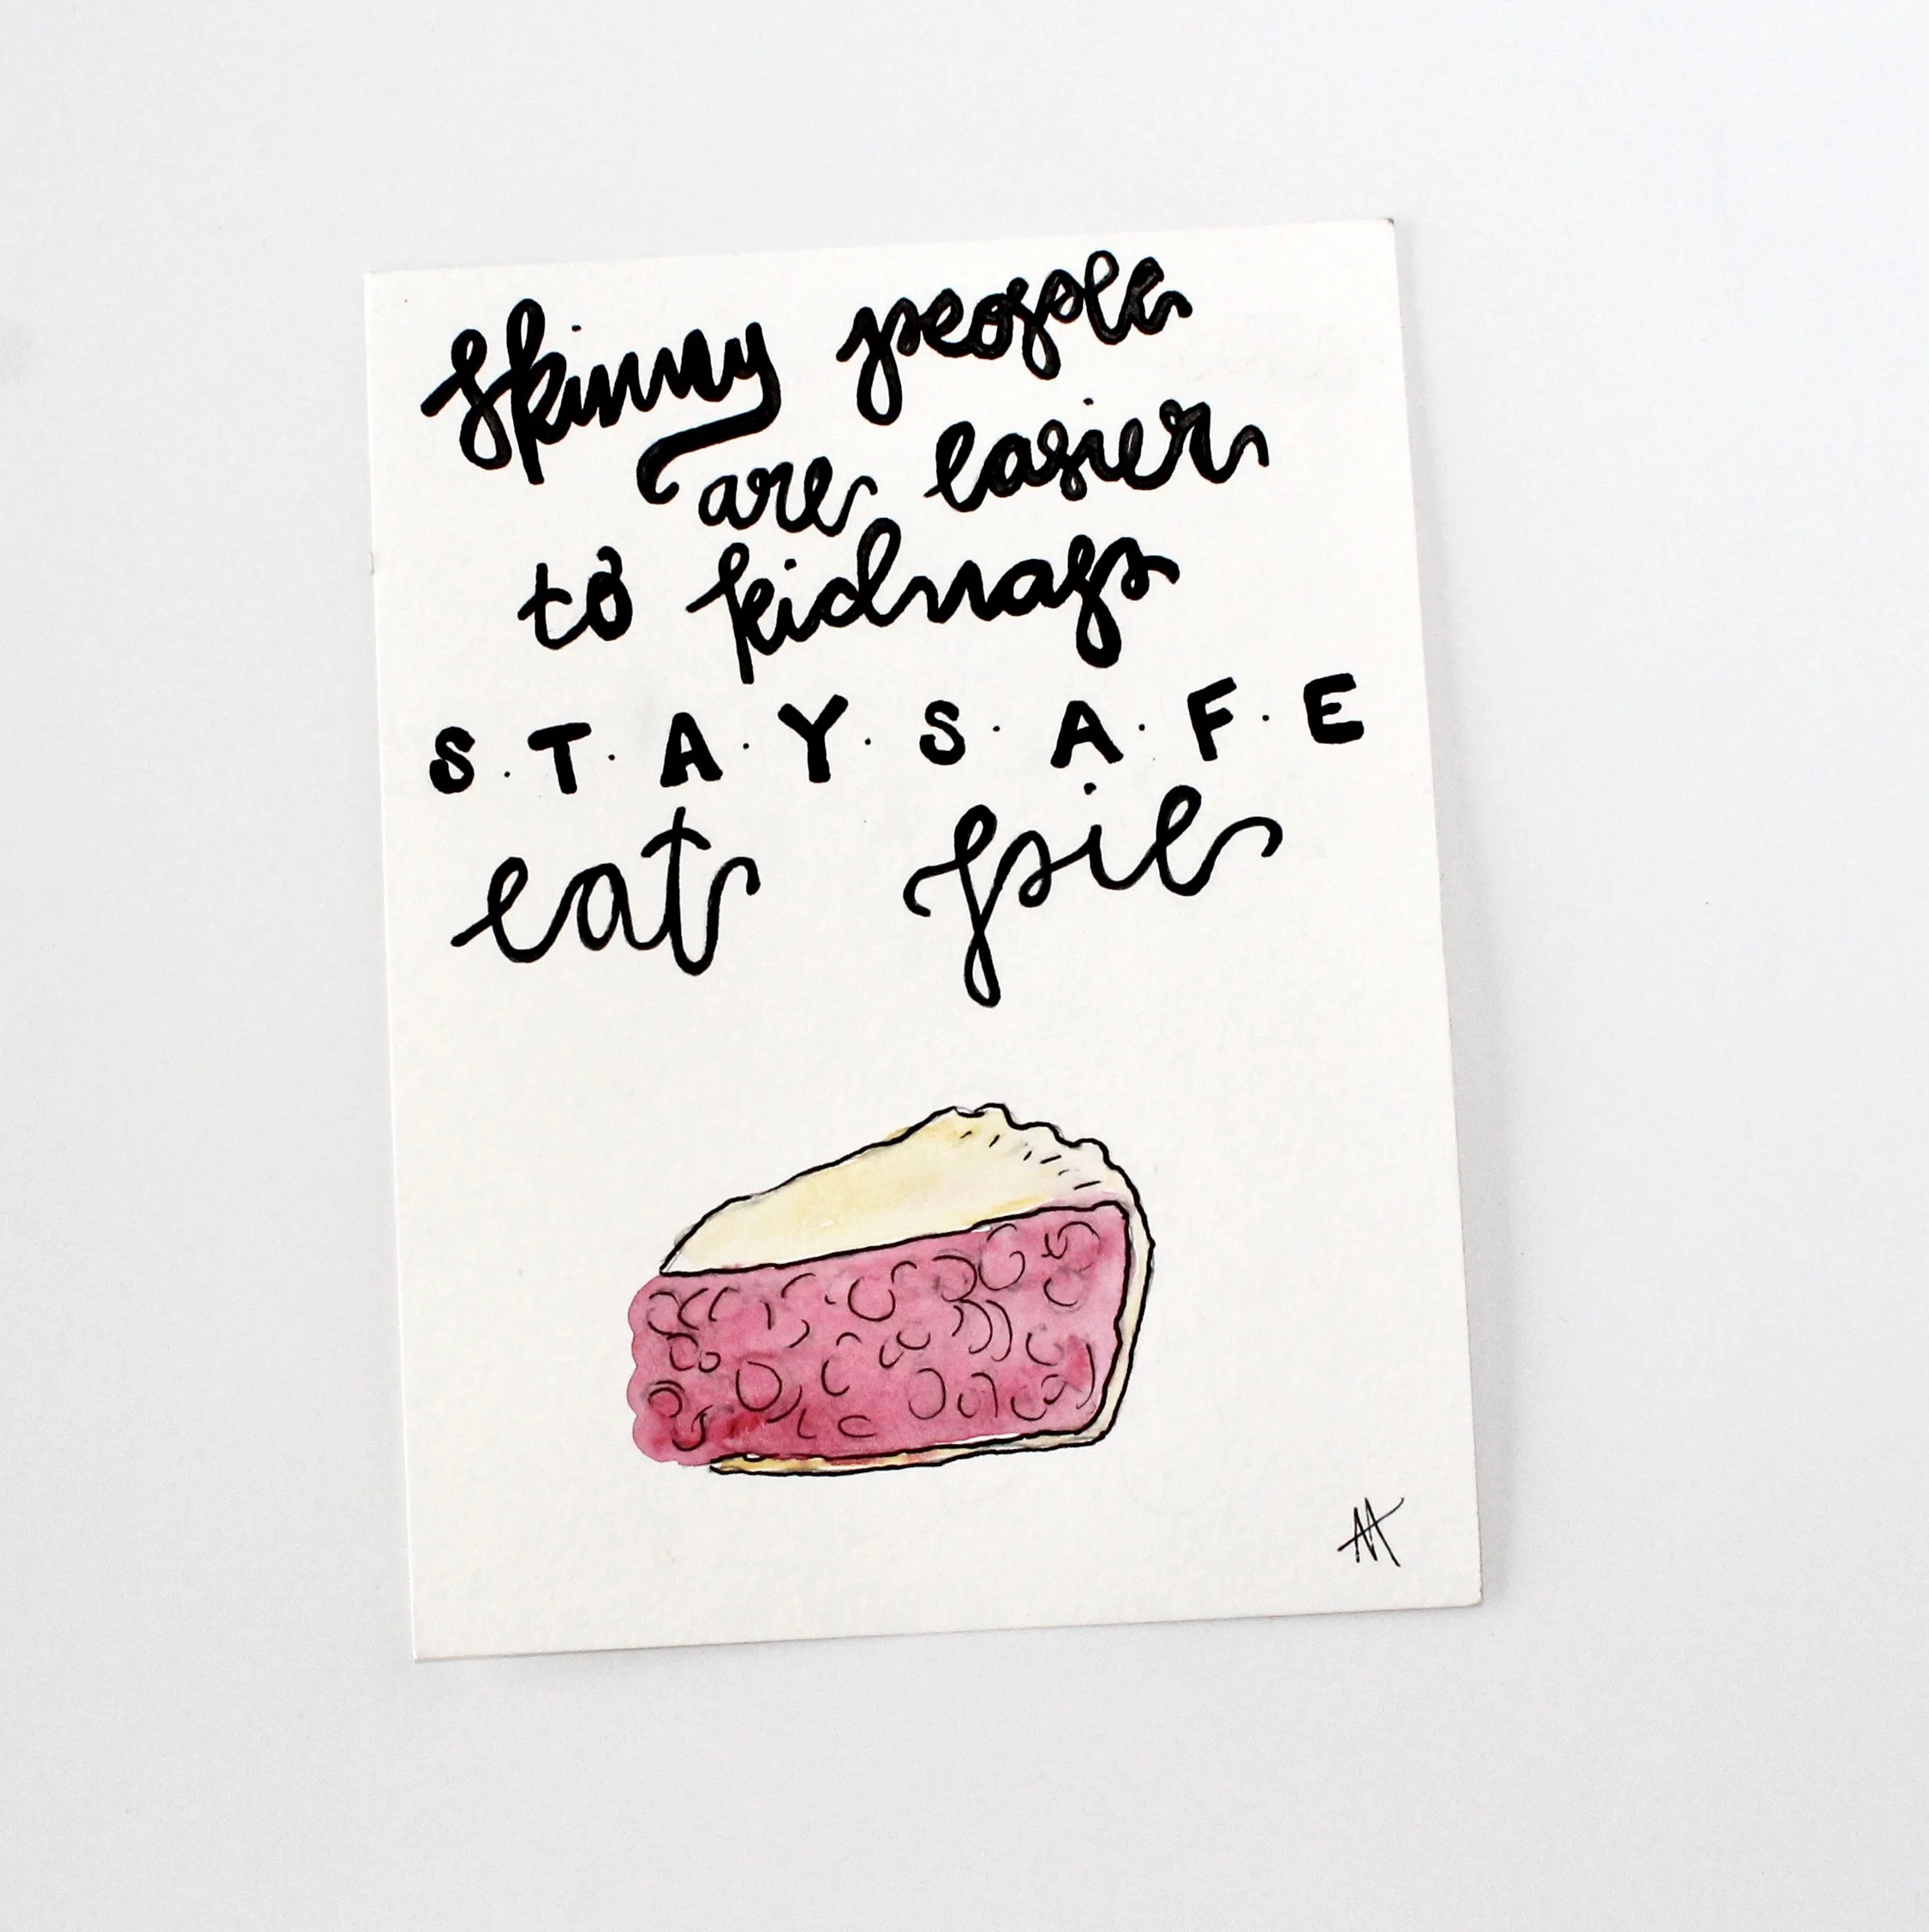 Skinny people
are easier
to kidnap
S.T.A.Y.S.A.F.E
eat pie